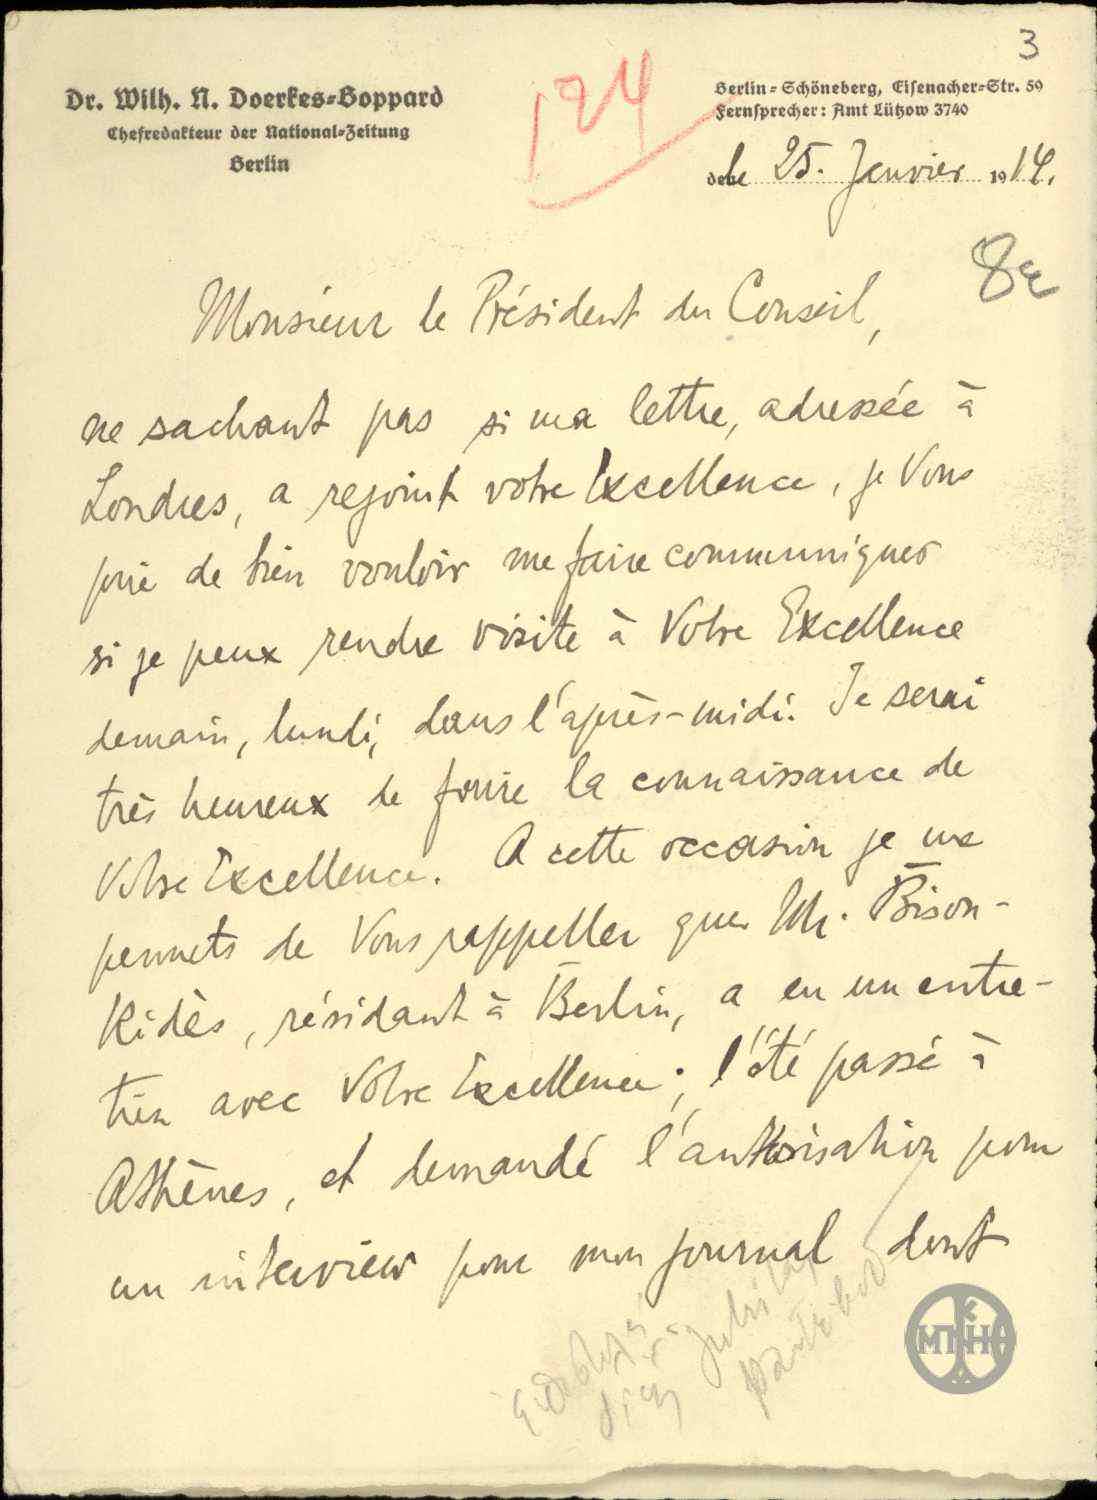 3
Dr. Wilh. N. Doerkes-Boppard
Chefredakteur der National-Zeitung
Berlin
124
Berlin-Schöneberg, Eisenacher-Str. 59
Fernsprecher: Amt Lützow 3740
den le 25. Janvier 1914.
8
Monsieur le Président du Conseil,
ne sachant pas si ma lettre, adressée à
Londres, a rejoint votre Excellence, je Vous
prie de bien vouloir me faire communiquer
si je peux rendre visite à Votre Excellence
demain, lundi, dans l'après-midi. Je serai
très heureux de faire la connaissance de
Votre Excellence. A cette occasion je me
permets de Vous rappeller que Mr. Bison-
Kidès, résidant à Berlin, a eu un entre-
tien avec Votre Excellence, l'été passé à
Athènes, et demandé l'authorisation pour
un interview pour mon journal dont
ΜΠΗ